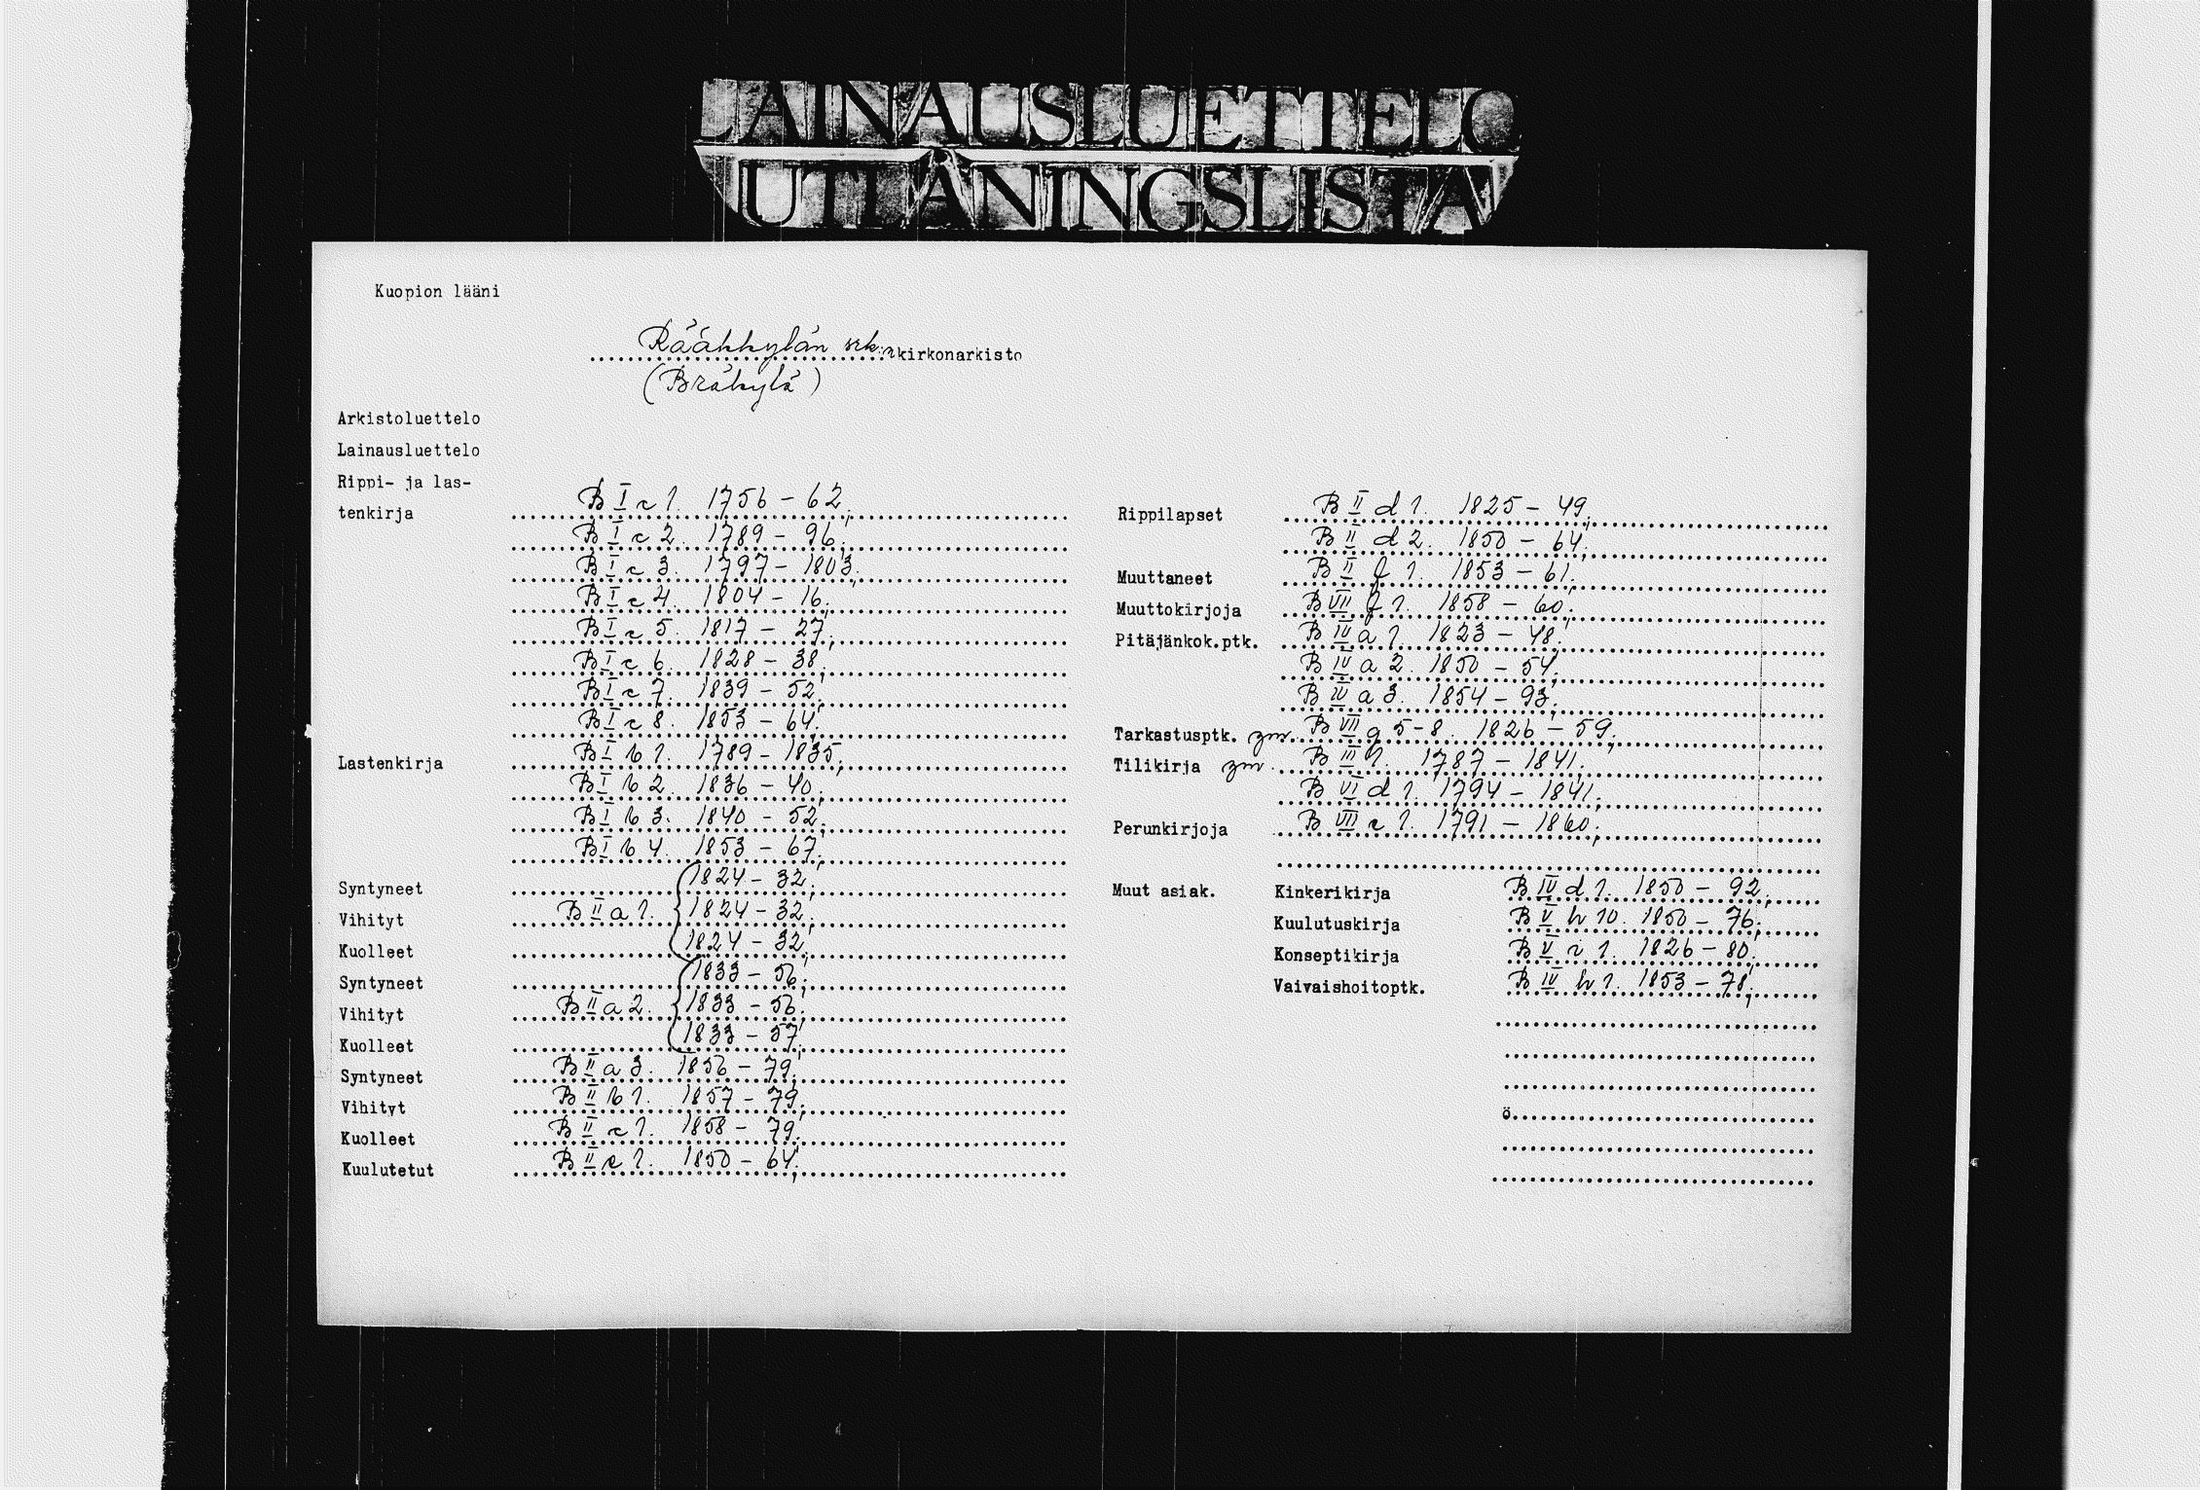 LAINAUSLUETTELO
UTLÅNINGSLISTA
Kuopion lääni
Rääkkylän srk:n kirkonarkisto
(Bräkylä)
Arkistoluettelo
Lainausluettelo
Rippi- ja las-
tenkirja B I c 1. 1756 - 62;
B I c 2. 1789 - 96;
B I c 3. 1797 - 1803;
B I c 4. 1804 - 16;
B I c 5. 1817 - 27;
B I c 6. 1828 - 38;
B I c 7. 1839 - 52;
B I c 8. 1853 - 64;
Lastenkirja B I b 1. 1789 - 1835;
B I b 2. 1836 - 40;
B I b 3. 1840 - 52;
B I b 4. 1853 - 67;
Syntyneet 1824 - 32;
Vihityt B II a 1. 1824 - 32;
Kuolleet 1824 - 32;
Syntyneet 1833 - 56;
Vihityt B II a 2. 1833 - 56;
Kuolleet 1833 - 57;
Syntyneet B II a 3. 1856 - 79;
Vihityt B II b 1. 1857 - 79;
Kuolleet B II c 1. 1858 - 79;
Kuulutetut B II e 1. 1850 - 64;
Rippilapset B II d 1. 1825 - 49;
B II d 2. 1850 - 64;
Muuttaneet B II f 1. 1853 - 61;
Muuttokirjoja B VII f 1. 1858 - 60;
Pitäjänkok.ptk. B IV a 1. 1823 - 48;
B IV a 2. 1850 - 54;
B IV a 3. 1854 - 93;
Tarkastusptk. ym. B VII g 5-8. 1826 - 59;
Tilikirja ym. B III 1. 1787 - 1841;
B VI d 1. 1794 - 1841;
Perunkirjoja B VII c 1. 1791 - 1860;
Muut asiak. Kinkerikirja B IV d 1. 1850 - 92;
Kuulutuskirja B V h 10. 1850 - 76;
Konseptikirja B V i 1. 1826 - 80;
Vaivaishoitoptk. B IV h 1. 1853 - 78;
ö